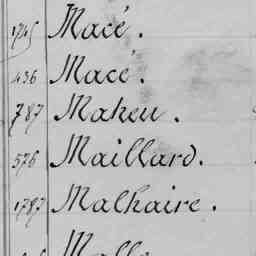 1745 Macé.
436 Macé.
787 Maheu.
576 Maillard.
1787 Malhaire.